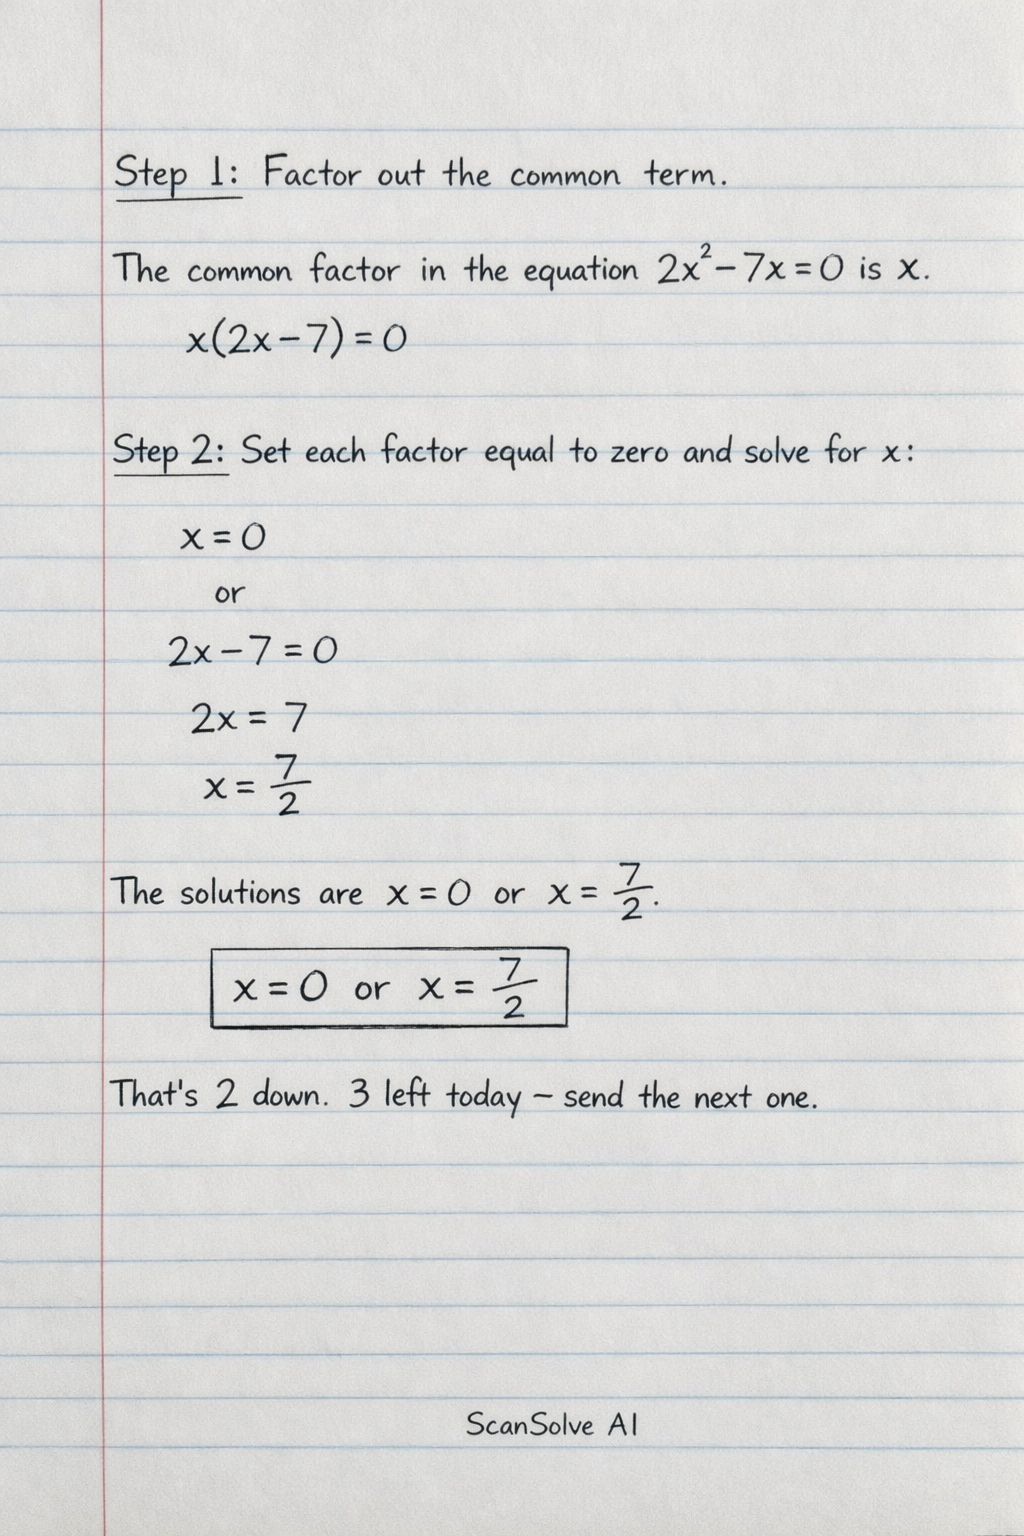 Step 1: Factor out the common term.
The common factor in the equation 2x² - 7x = 0 is x.
x(2x - 7) = 0
Step 2: Set each factor equal to zero and solve for x:
x = 0
or
2x - 7 = 0
2x = 7
x = 7/2
The solutions are x = 0 or x = 7/2.
x = 0 or x = 7/2
That's 2 down. 3 left today – send the next one.
ScanSolve AI